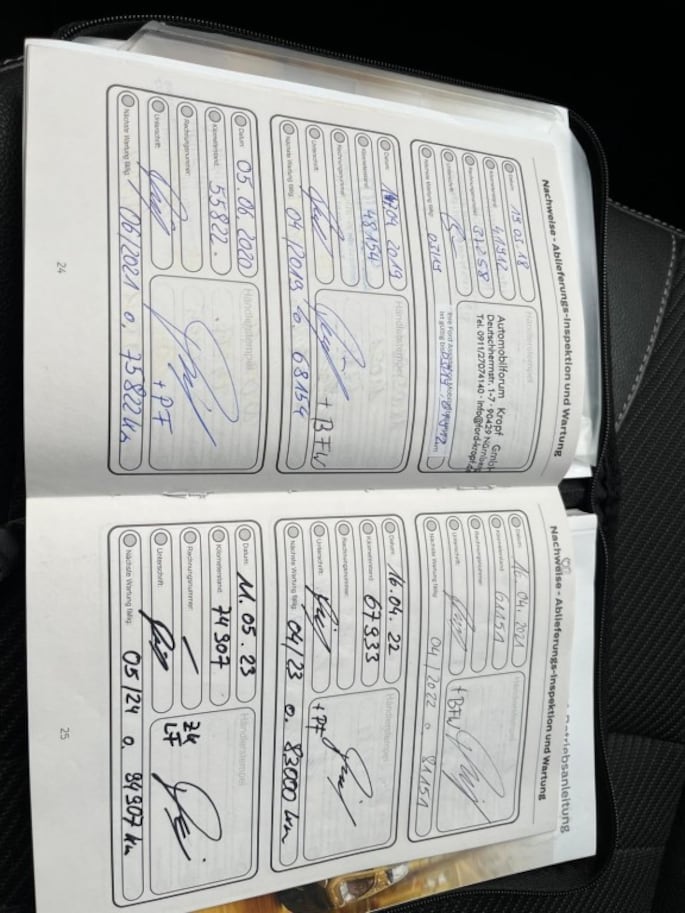 Nachweise - Ablieferungs-Inspektion und Wartung
Datum: 15.03.18
Kilometerstand:
Rechnungsnummer: 37258
Unterschrift:
Nächste Wartung fällig: 03/19
Händlerstempel
Automobilforum Kropf GmbH
Deutschherrnstr. 1-7 · 90429 Nürnberg
Tel. 0911/27074140 · info@ford-kropf.de
Datum: 04 2019
Kilometerstand: 48154
Rechnungsnummer:
Unterschrift:
Nächste Wartung fällig: 04/2019 o. 68154
Händlerstempel
+ BFW
Datum: 05.06 2020
Kilometerstand: 55822.
Rechnungsnummer:
Unterschrift:
Nächste Wartung fällig: 06/2021 o. 75822 km
Händlerstempel
+ PF
24
Nachweise - Ablieferungs-Inspektion und Wartung
Datum: 16.04.2021
Kilometerstand: 61151
Rechnungsnummer:
Unterschrift:
Nächste Wartung fällig: 04/2022 o. 81151
Händlerstempel
+ BFW
Datum: 16.04.22
Kilometerstand: 67933
Rechnungsnummer:
Unterschrift:
Nächste Wartung fällig: 04/23 o. 83000 km
Händlerstempel
+ PF
Datum: 11.05.23
Kilometerstand: 74907
Rechnungsnummer: –
Unterschrift:
Nächste Wartung fällig: 05/24 o. 84907 km
Händlerstempel
LF
25
Betriebsanleitung